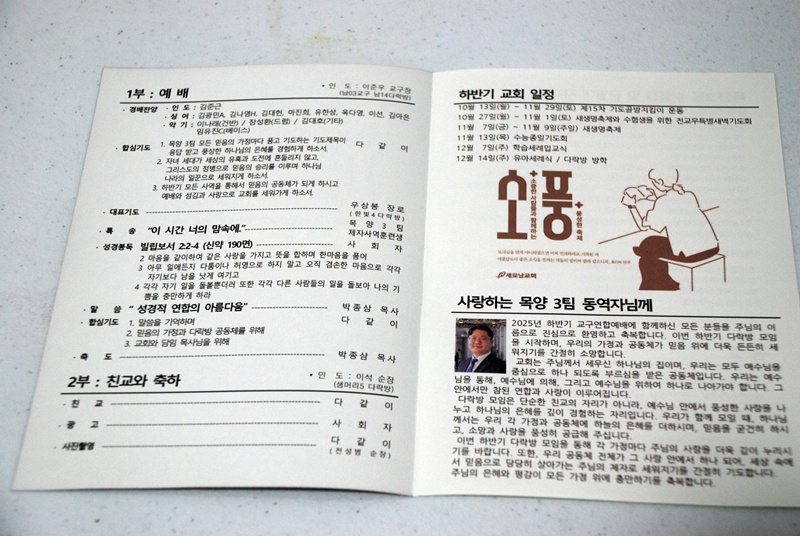 1부 : 예 배
• 인 도 : 이준우 교구장
(남03교구 남14다락방)
· 경배찬양 · 인 도 : 김준근
· 싱 어 : 김광민A, 김나영H, 김대헌, 마진희, 유한상, 옥다영, 이선, 김아은
· 악 기 : 이나래(건반) / 장성환(드럼) / 김대호(기타)
임유진C(베이스)
· 합심기도 1. 목양 3팀 모든 믿음의 가정마다 품고 기도하는 기도제목이 다 같 이
응답 받고 풍성한 하나님의 은혜를 경험하게 하소서.
2. 자녀 세대가 세상의 유혹과 도전에 흔들리지 않고,
그리스도의 정병으로 믿음의 승리를 이루며 하나님
나라의 일꾼으로 세워지게 하소서.
3. 하반기 모든 사역을 통해서 믿음의 공동체가 되게 하시고
예배와 섬김과 사랑으로 교회를 세워가게 하소서.
· 대표기도 우상봉 장로
(한빛4다락방)
· 특 송 "이 시간 너의 맘속에." 목양 3팀
제자사역훈련생
· 성경봉독 빌립보서 2:2-4 (신약 190면) 사 회 자
2 마음을 같이하여 같은 사랑을 가지고 뜻을 합하며 한마음을 품어
3 아무 일에든지 다툼이나 허영으로 하지 말고 오직 겸손한 마음으로 각각
자기보다 남을 낫게 여기고
4 각각 자기 일을 돌볼뿐더러 또한 각각 다른 사람들의 일을 돌보아 나의 기
쁨을 충만하게 하라
· 말 씀 "성경적 연합의 아름다움" 박종삼 목사
· 합심기도 1. 말씀을 기억하며 다 같 이
2. 믿음의 가정과 다락방 공동체를 위해
3. 교회와 담임 목사님을 위해
· 축 도 박종삼 목사
2부 : 친교와 축하
• 인 도 : 이석 순장
(샘머리5 다락방)
· 친 교 다 같 이
· 광 고 사 회 자
· 사진촬영 다 같 이
(전성범 순장)
하반기 교회 일정
10월 13일(월) ~ 11월 29일(토) 제15차 기도골방지킴이 운동
10월 27일(월) ~ 11월 1일(토) 새생명축제와 수험생을 위한 전교우특별새벽기도회
11월 7일(금) ~ 11월 9일(주일) 새생명축제
11월 13일(목) 수능종일기도회
12월 7일(주) 학습세례입교식
12월 14일(주) 유아세례식 / 다락방 방학
소풍
소중한 사람들과 함께하는
풍성한 축제
새로남교회
사랑하는 목양 3팀 동역자님께
2025년 하반기 교구연합예배에 함께하신 모든 분들을 주님의 이
름으로 진심으로 환영하고 축복합니다. 이번 하반기 다락방 모임
을 시작하며, 우리의 가정과 공동체가 믿음 위에 더욱 든든히 세
워지기를 간절히 소망합니다.
교회는 주님께서 세우신 하나님의 집이며, 우리는 모두 예수님을
중심으로 하나 되도록 부르심을 받은 공동체입니다. 우리는 예수
님을 통해, 예수님에 의해, 그리고 예수님을 위하여 하나로 나아가야 합니다. 그
안에서만 참된 연합과 사랑이 이루어집니다.
다락방 모임은 단순한 친교의 자리가 아니라, 예수님 안에서 풍성한 사랑을 나
누고 하나님의 은혜를 깊이 경험하는 자리입니다. 우리가 함께 모일 때, 하나님
께서는 우리 각 가정과 공동체에 하늘의 은혜를 더하시며, 믿음을 굳건히 하시
고, 소망과 사랑을 풍성히 공급해 주십니다.
이번 하반기 다락방 모임을 통해 각 가정마다 주님의 사랑을 더욱 깊이 누리시
기를 바랍니다. 또한, 우리 공동체 전체가 그 사랑 안에서 하나 되어, 세상 속에
서 믿음으로 당당히 살아가는 주님의 제자로 세워지기를 간절히 기도합니다.
주님의 은혜와 평강이 모든 가정 위에 충만하기를 축복합니다.